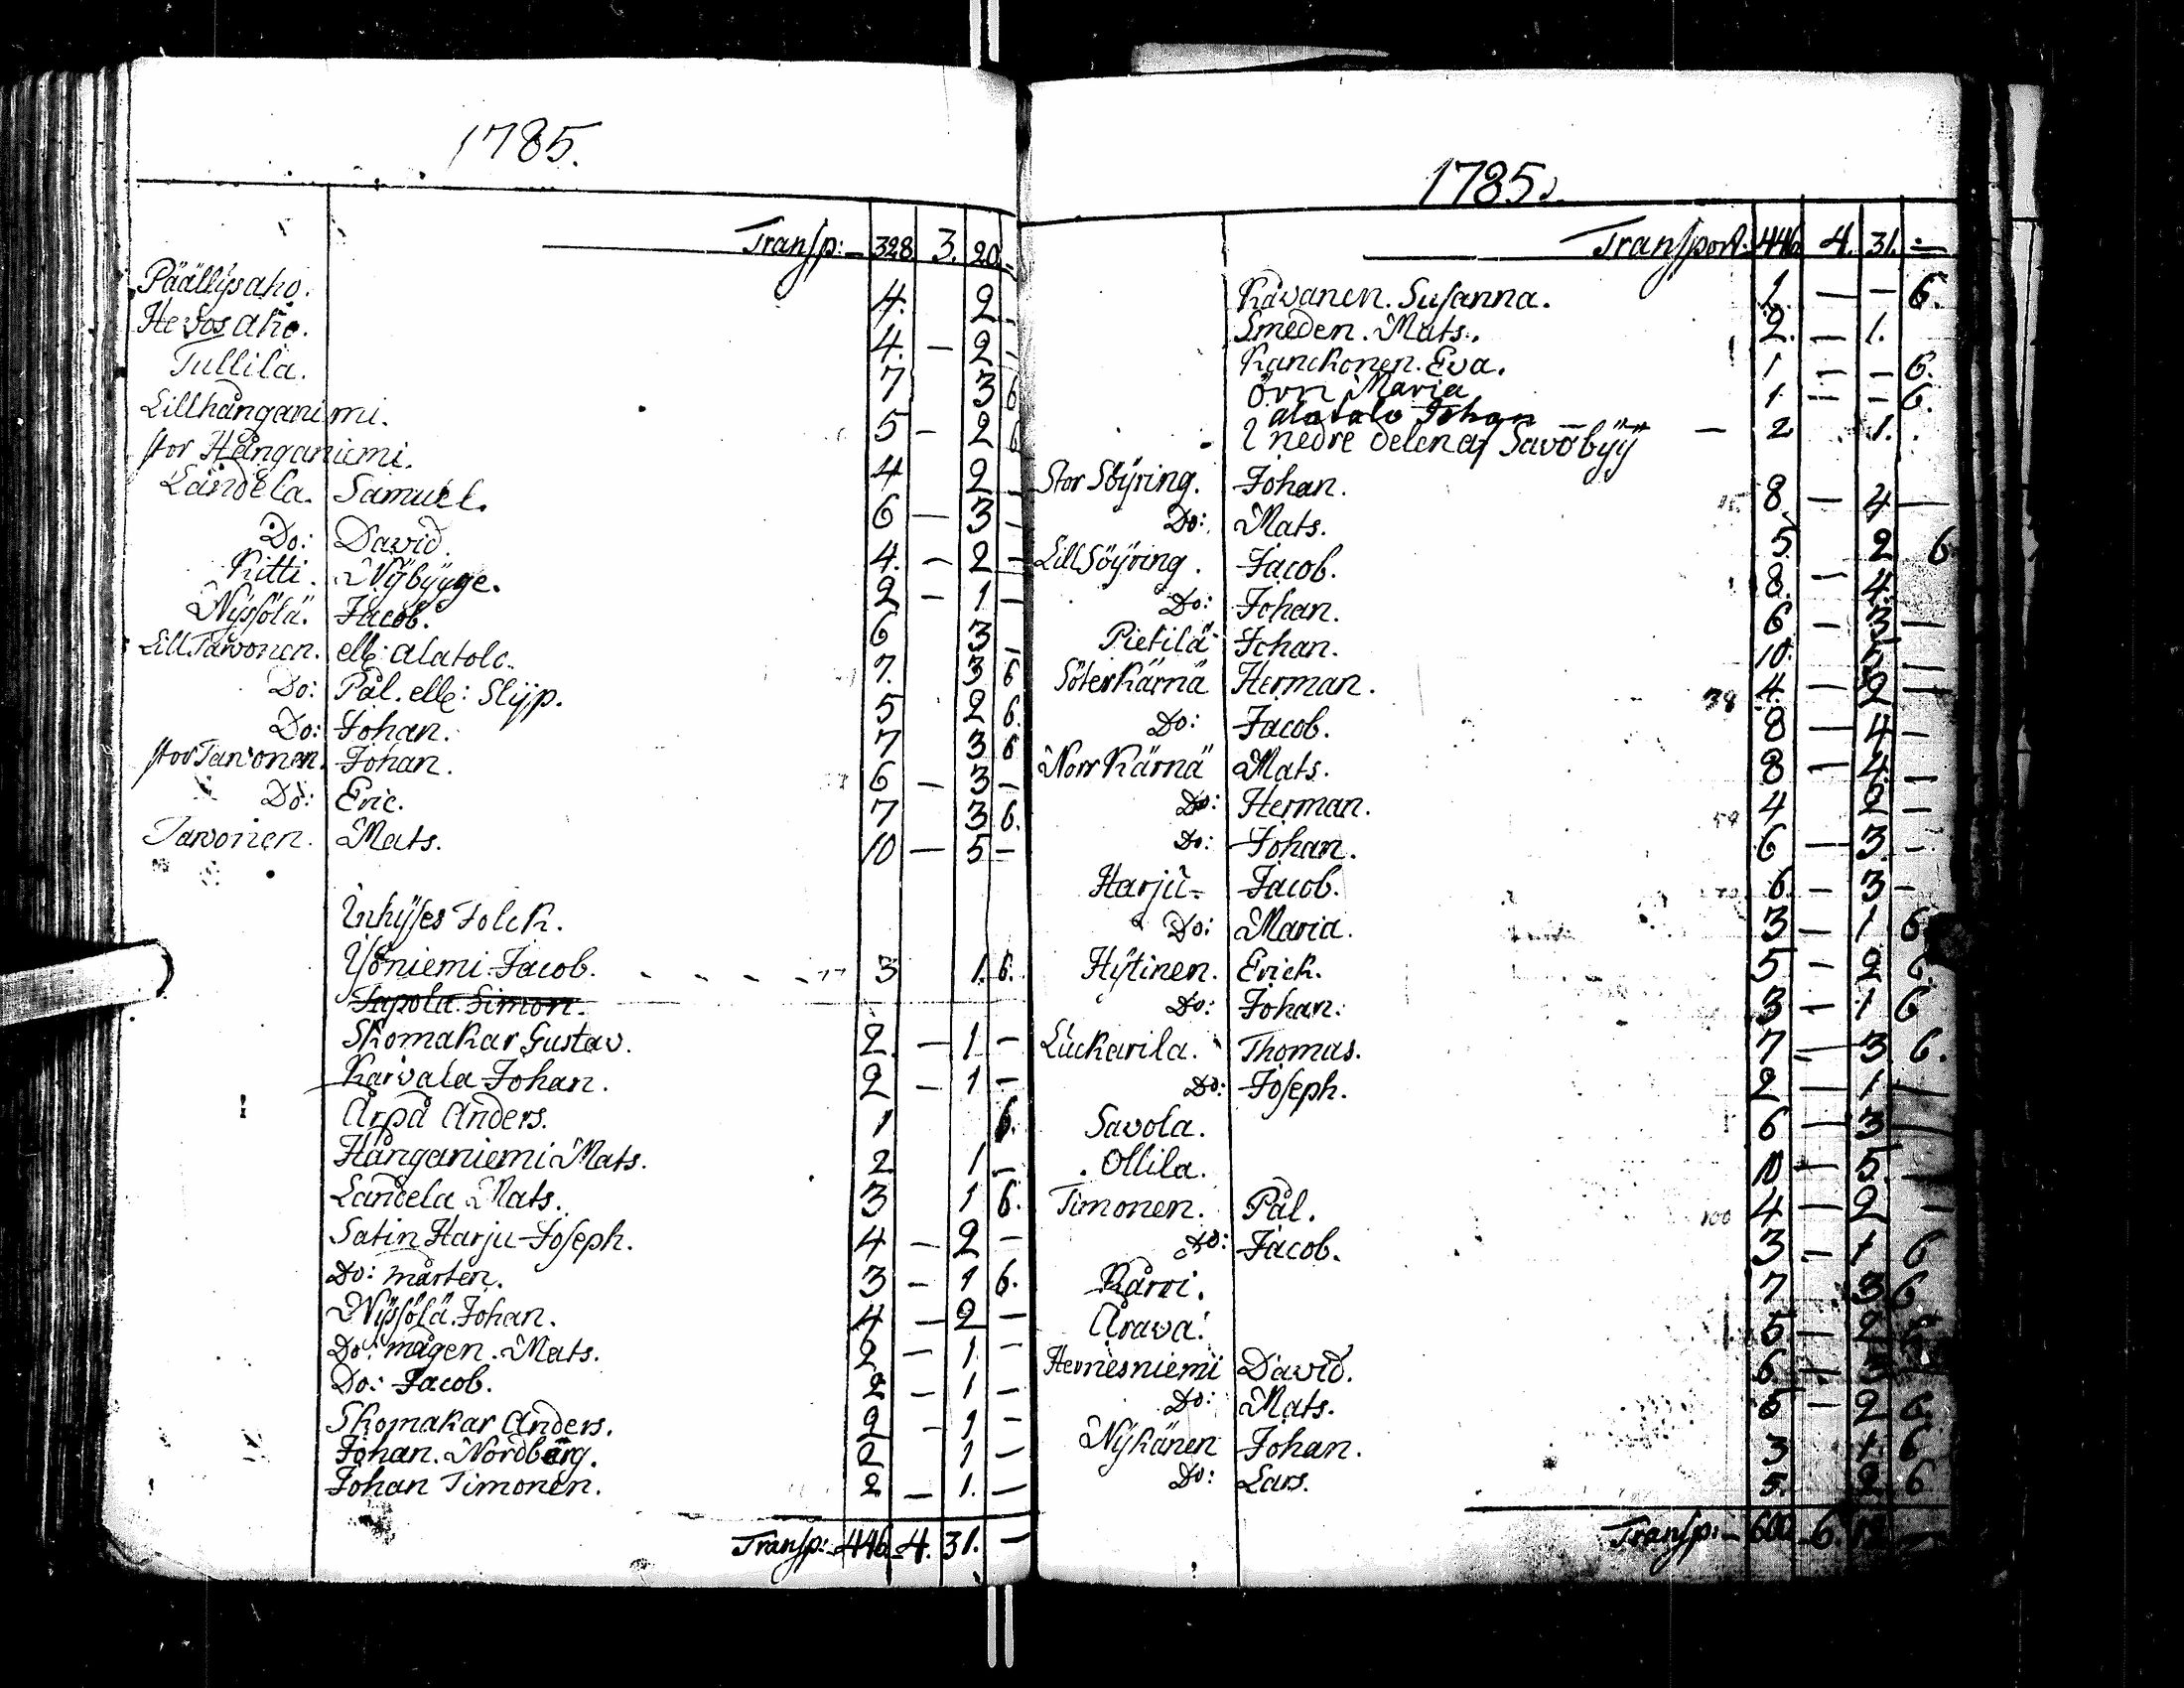 1785.
Transp: — 328. 3. 20. -
Päällys aho. 4. 2 -
Hevos aho. 4. — 2 -
Tullila. 7 3 6
Lillhånganimi. 5 — 2 6
stor Hånganiemi. 4 2 -
Landela. Samuel. 6 — 3 -
Do: David. 4. — 2 -
Kitti. Nybygge. 2 — 1 —
Nyssölä. Jacob. 6 3 -
Lill Tarvonen. elle: alatolo. 7. 3 6
Do: Pål. elle: Slijp. 5 2 6.
Do: Johan. 7 3 6
stor Tarvonen. Johan. 6 — 3 —
Do: Eric. 7 3 6.
Tarvonen. Mats. 10 — 5 —
Inhyses Folck.
Yöniemi Jacob. 3 1. 6.
Tapola Simon.
Skomakar Gustav. 2. — 1 —
Karvala Johan. 2 — 1 —
Arpa Anders. 1 6.
Hånganiemi Mats. 2 1 —
Landela Mats. 3 1 6.
Satin Harju Joseph. 4 — 2 —
Do: mårten. 3 — 1 6.
Nyssölä Johan. 4 — 2 —
Do: mågen. Mats. 2 — 1. —
Do: Jacob. 2 — 1 —
Skomakar Anders. 2 — 1 —
Johan. Nordberg. 2 1 —
Johan Timonen. 2 — 1. —
Transp: 446. 4. 31. —
1785.
Transport. 446. 4. 31. —
Kåvanen. Susanna. 1. — — 6.
Smeden. Mats. 2. — 1.
Kanckonen. Eva. 1 — — 6.
Övn Maria 1. — — 6.
alatalo Johan
I nedre delen af Savobyy — 2 1.
Stor Söyring. Johan. 8 — 4 —
Do: Mats. 5 2 6
Lill Söyring. Jacob. 8. — 4.
Do: Johan. 6 — 3 —
Pietilä Johan. 10. 5 —
Söterkärnä Herman. 4. — 2 —
Do: Jacob. 8 — 4 —
Norr Kärnä Mats. 8 — 4. —
Do: Herman. 4 — 2 —
Do: Johan. 6 — 3. —
Harju. Jacob. 6. — 3 —
Do: Maria. 3 — 1 6
Hytinen. Erick. 5 — 2 6.
Do: Johan. 3 — 1 6
Luckarila. Thomas. 7 — 3 6.
Do: Joseph. 2 — 1 —
Savola. 6 — 3 —
Ollila. 10 — 5 —
Timonen. Pål. 100 4 — 2 —
Do: Jacob. 3 — 1 6
Karvi. 7 3 6
Arava. 5 — 2
Hernesniemi David. 6 — 3
Do: Mats. 5 — 2 6
Nykänen Johan. 3 1. 6
Do: Lars. 5. 2 6
Transp: — 600 6.